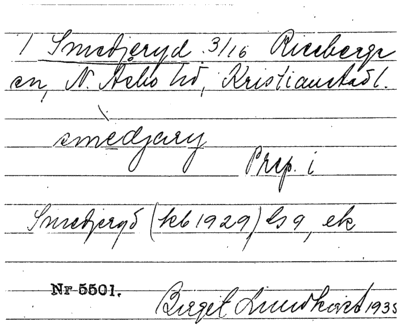 1 Smedjeryd 3/16 Riseberga
sn, N. Åsbo hd, Kristianstads l.
smedjary
Prep. i
Smedjeryd (kb 1929) ls 9, ek
Nr 5501.
Birger Lundkvist 1935